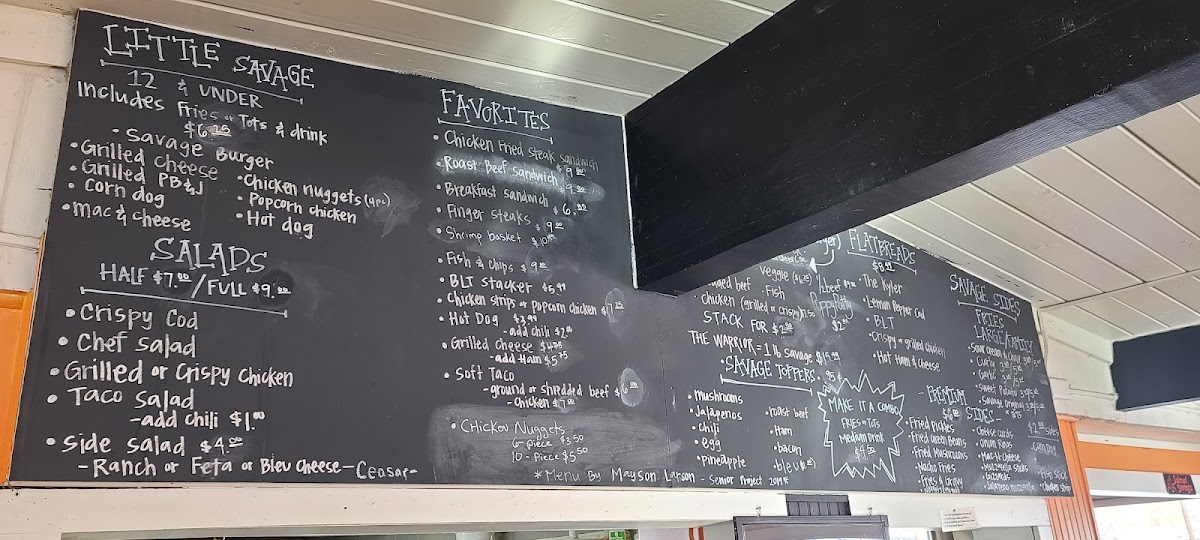 LITTLE SAVAGE
12 & UNDER
Includes Fries or Tots & drink
$6.25
• Savage Burger
• Grilled cheese
• Grilled PB&J
• corn dog
• mac & cheese
• Chicken nuggets (4pc)
• Popcorn chicken
• Hot dog
SALADS
HALF $7.00 / FULL $9.00
• Crispy Cod
• Chef salad
• Grilled or Crispy Chicken
• Taco salad
- add chili $1.00
• side salad $4.00
- Ranch or Feta or Bleu cheese - Ceasar -
FAVORITES
• Chicken Fried steak sandwich
$9.00
• Roast Beef sandwich $9.00
• Breakfast sandwich $6.00
• Finger steaks $9.00
• Shrimp basket $10.00
• Fish & chips $9.00
• BLT stacker $5.99
• Chicken strips or popcorn chicken $7.25
• Hot Dog $3.99
- add chili $2.00
• Grilled cheese $4.75
- add Ham $5.75
• Soft Taco
- ground or shredded beef $6.00
- chicken $7.00
• Chicken Nuggets
6-piece $3.50
10-piece $5.50
*Menu By Mayson Larson - Senior Project 2019*
veggie
beef • Fish
chicken (grilled or crispy)
Puppy Patty
$2.00
STACK FOR $2.50
THE WARRIOR = 1 lb savage $15.99
SAVAGE TOPPERS
• mushrooms
• Jalapenos
• chili
• egg
• pineapple
• roast beef
• Ham
• bacon
FLATBREADS
$8.49
• The Kyler
• Lemon Pepper Cod
• BLT
• Crispy or grilled chicken
• Hot Ham & Cheese
MAKE IT A COMBO
FRIES or TOTS
Medium drink
$4.50
SAVAGE SIDES
FRIES
LARGE/FAMILY
• Sweet Potato
• Savage Original
- PREMIUM
SIDES -
• Fried Pickles
• Fried Green Beans
• Fried Mushrooms
• Nacho Fries
• Fries & Gravy
• Cheese curds
• Onion Rings
• Mac-N-Cheese
• Mozzarella sticks
• Gizzards
• Fish stick
• Chicken strip